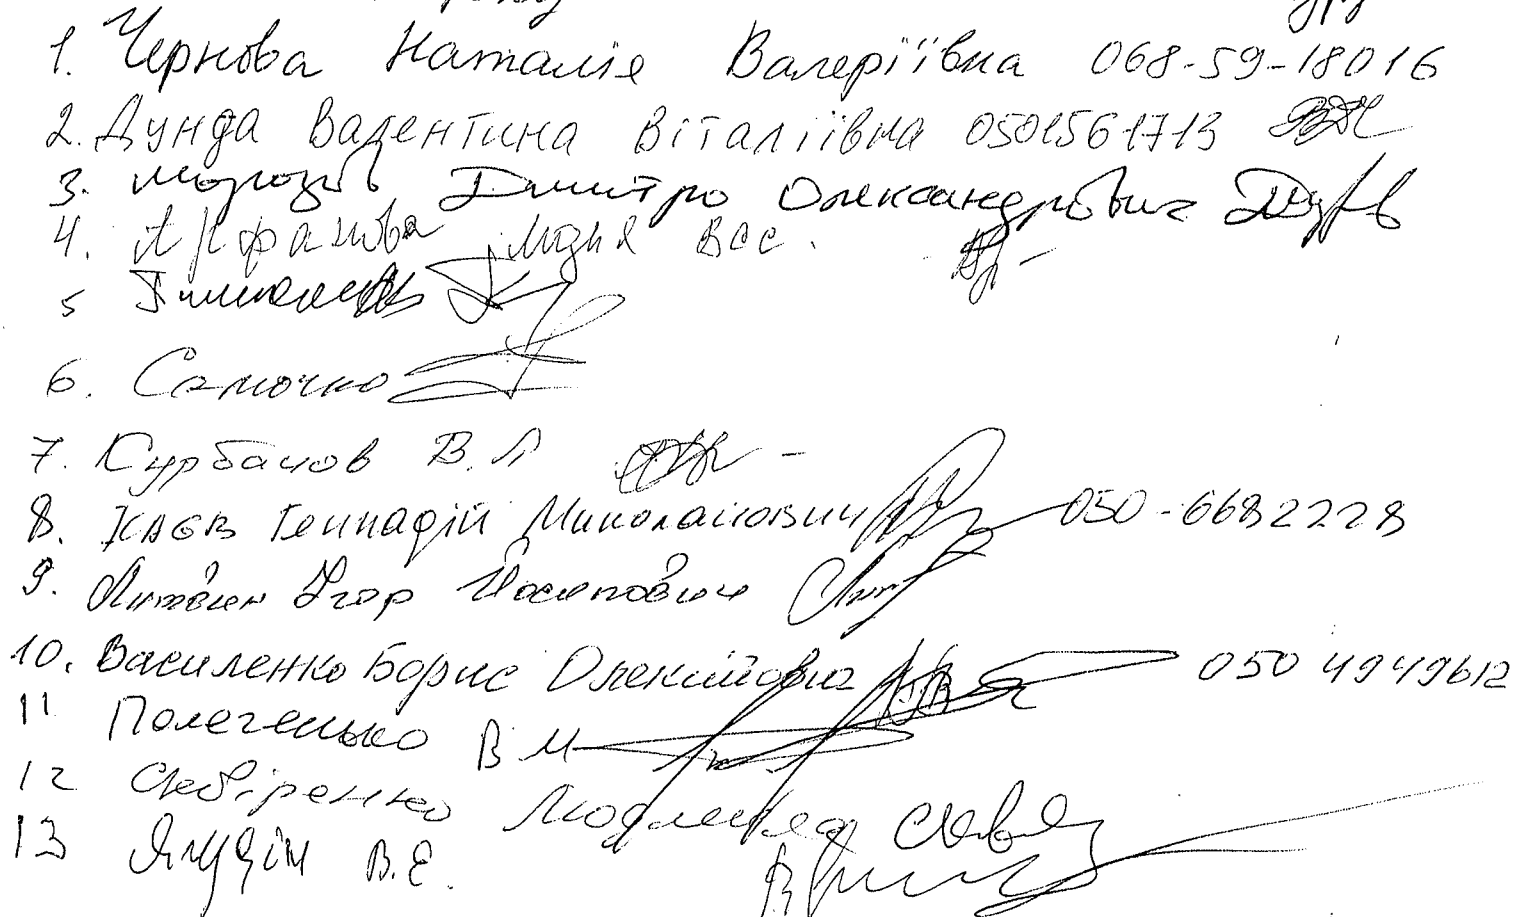 1. Чернова Наталія Валеріївна 068-59-18016
2. Дунда Валентина Віталіївна 0501561713
3. Морозов Дмитро Олександрович
4. Вас.
5
6. Самочко
7. Курбанов В.Л
8. Каєв Геннадій Миколайович 050-6682228
9. Литвин Ігор Йосипович
10. Василенко Борис Олексійович 050 4949612
11 Полегенько В М
12 СкВіренко Людмила
13 В.Е.